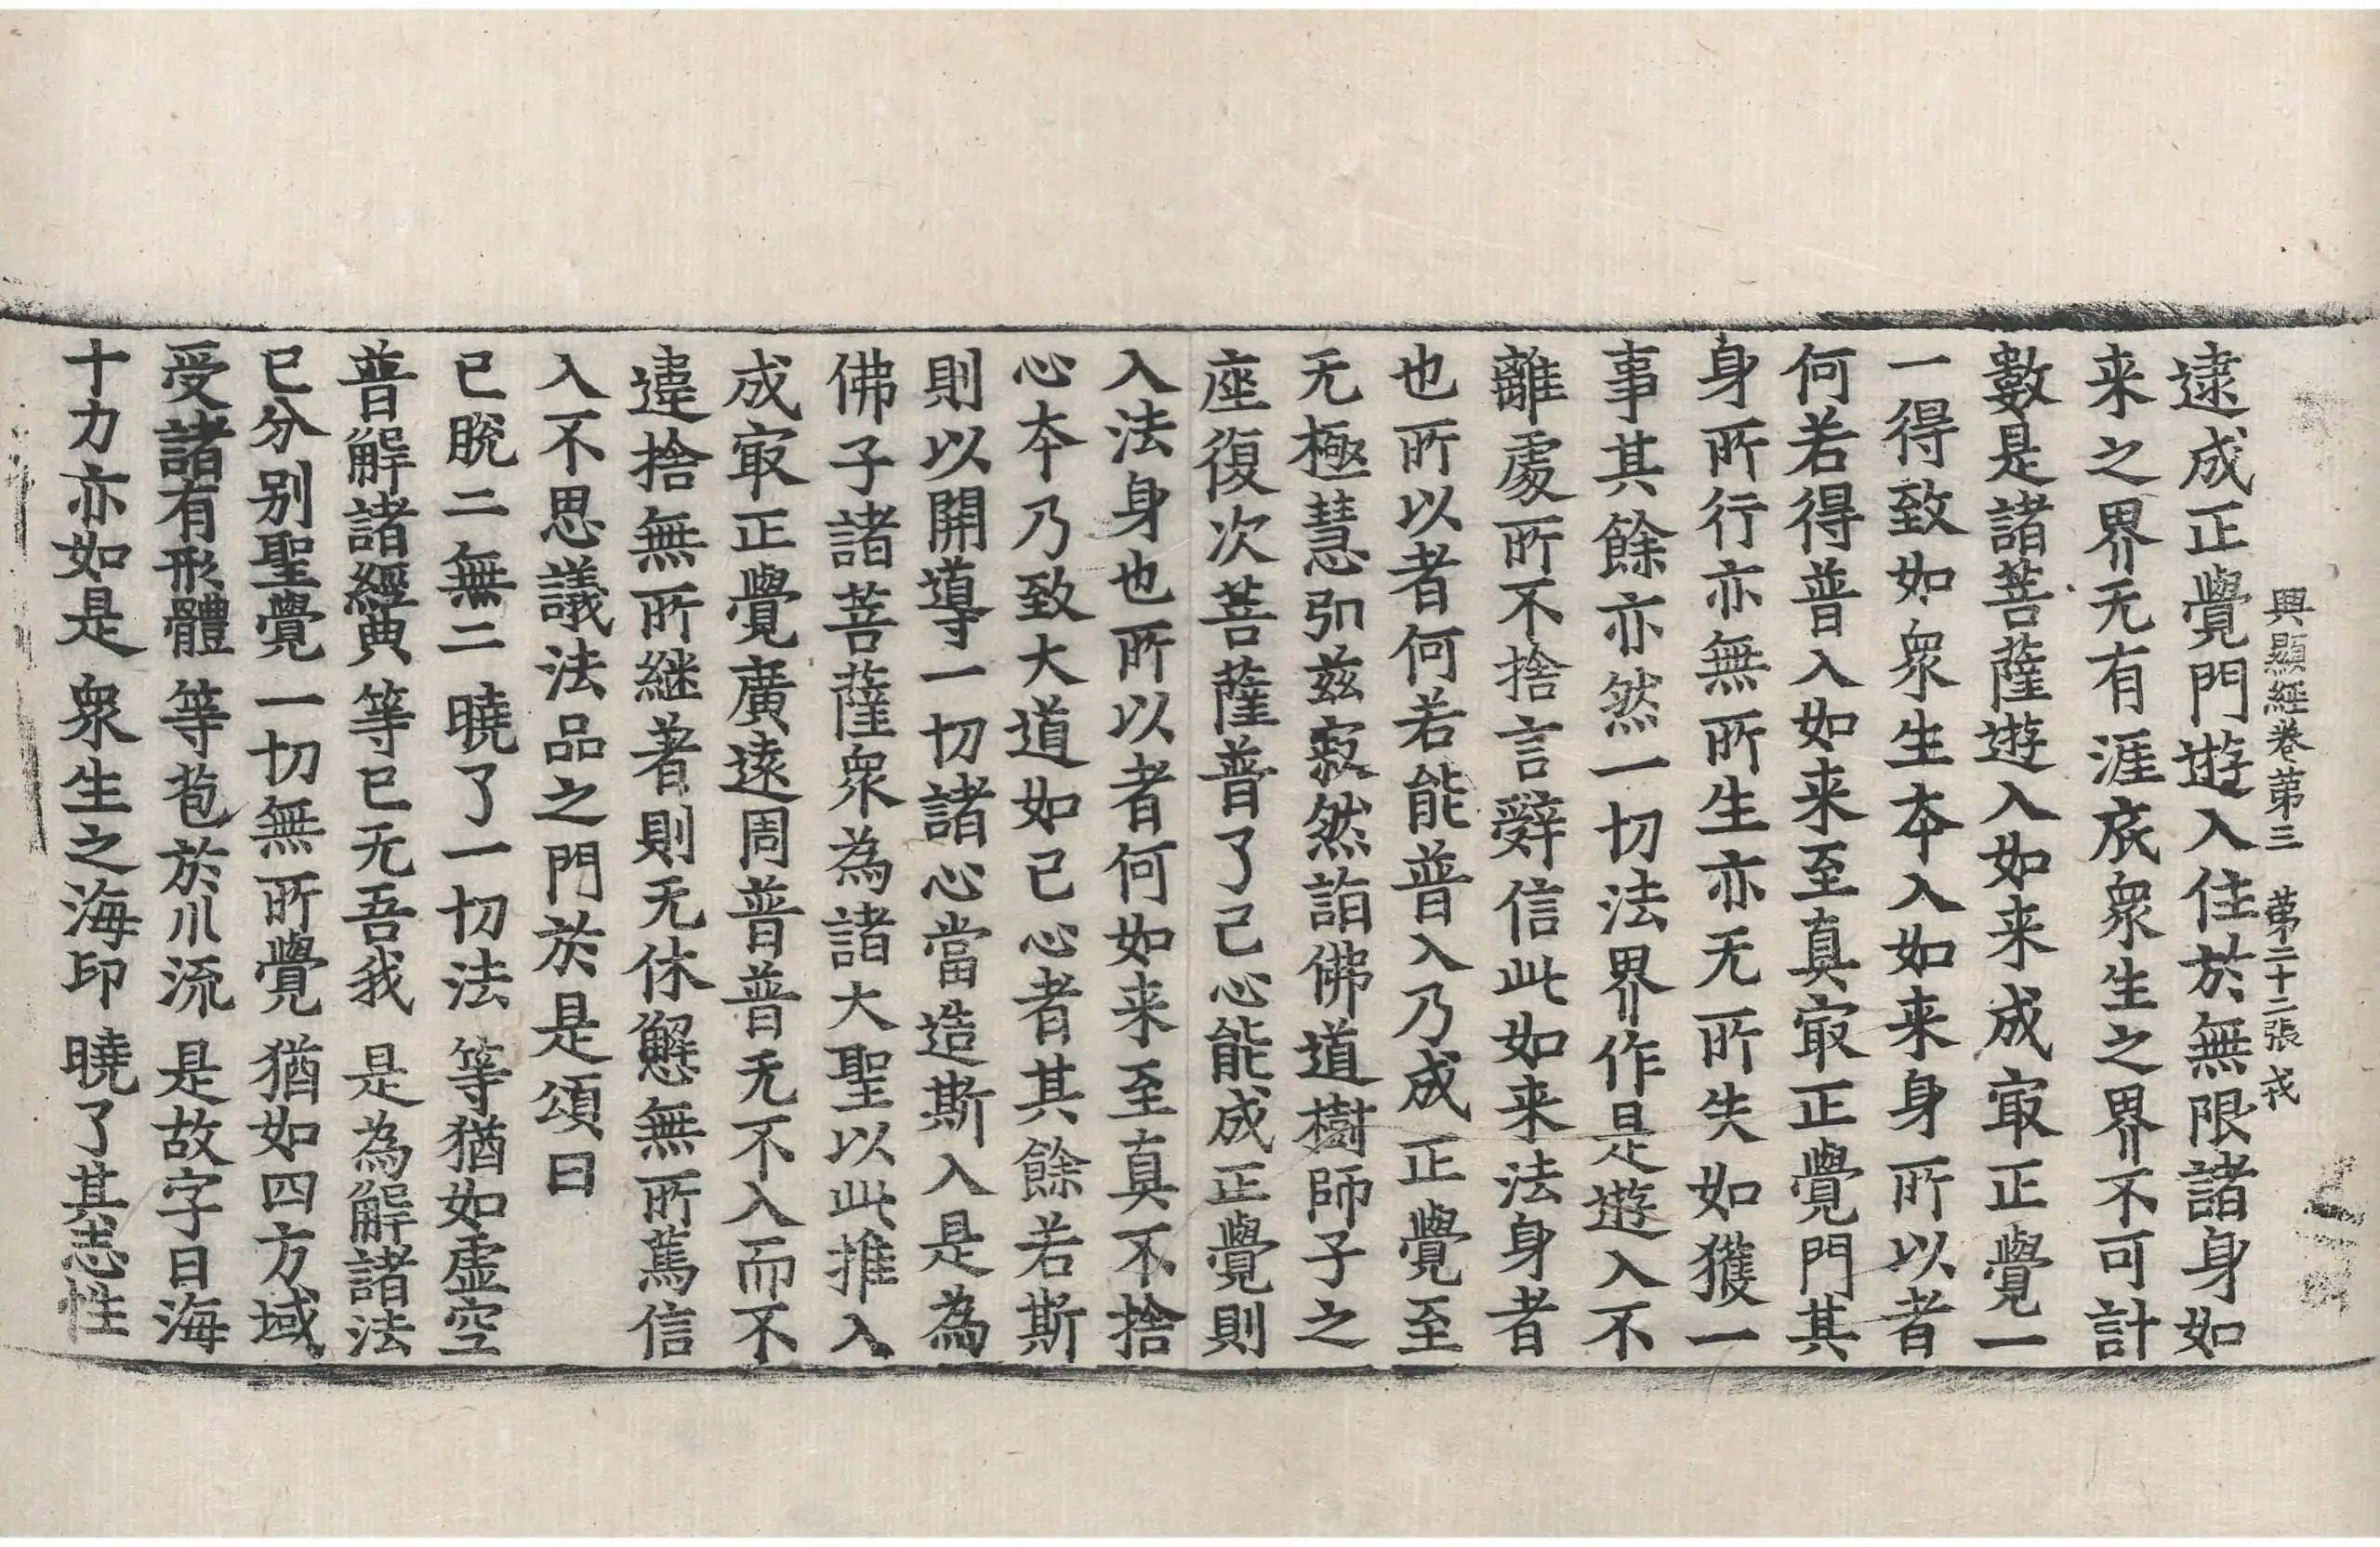 興顯經卷第三　第二十二張　戎
逮成正覺門遊入住於無限諸身如
来之界无有涯底衆生之界不可計
數是諸菩薩遊入如来成㝡正覺一
一得致如衆生本入如来身所以者
何若得普入如来至真㝡正覺門其
身所行亦無所生亦无所失如獲一
事其餘亦然一切法界作是遊入不
離處所不捨言辭信此如来法身者
也所以者何若能普入乃成正覺至
无極慧引兹寂然詣佛道樹師子之
座復次菩薩普了己心能成正覺則
入法身也所以者何如来至真不捨
心本乃致大道如己心者其餘若斯
則以開導一切諸心當造斯入是為
佛子諸菩薩衆為諸大聖以此推入
成㝡正覺廣遠周普普无不入而不
違捨無所継著則无休懈無所篤信
入不思議法品之門於是頌曰
已脫二無二　曉了一切法　等猶如虛空
普解諸經典　等已无吾我　是為解諸法
已分別聖覺　一切無所覺　猶如四方域
受諸有形體　等苞於川流　是故字曰海
十力亦如是　衆生之海印　曉了其志性